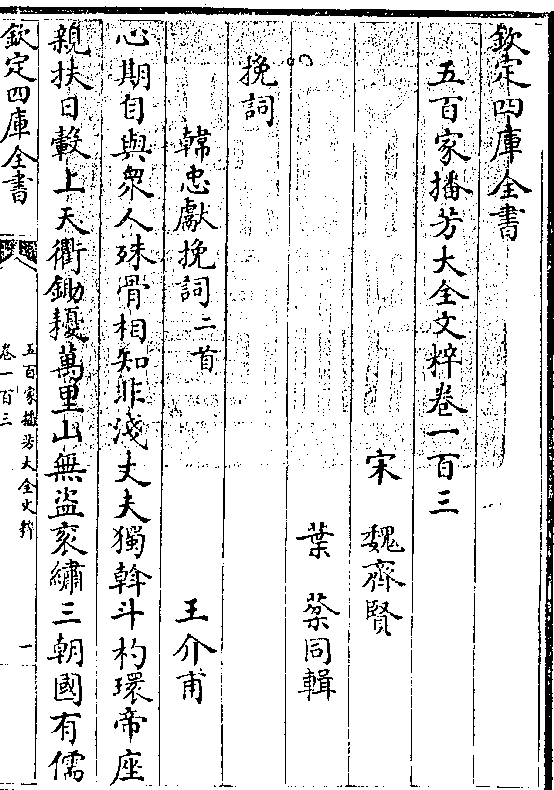 欽定四庫全書
五百家播芳大全文粹卷一百三
宋 魏齊賢
葉棻同輯
挽詞
韓忠獻挽詞二首
王介甫
心期自與衆人殊骨相知非淺丈夫獨斡斗杓環帝座
親扶日轂上天衢鋤耰萬里山無盗衮繡三朝國有儒
欽定四庫全書
五百家播芳大全文粹
卷一百三
一